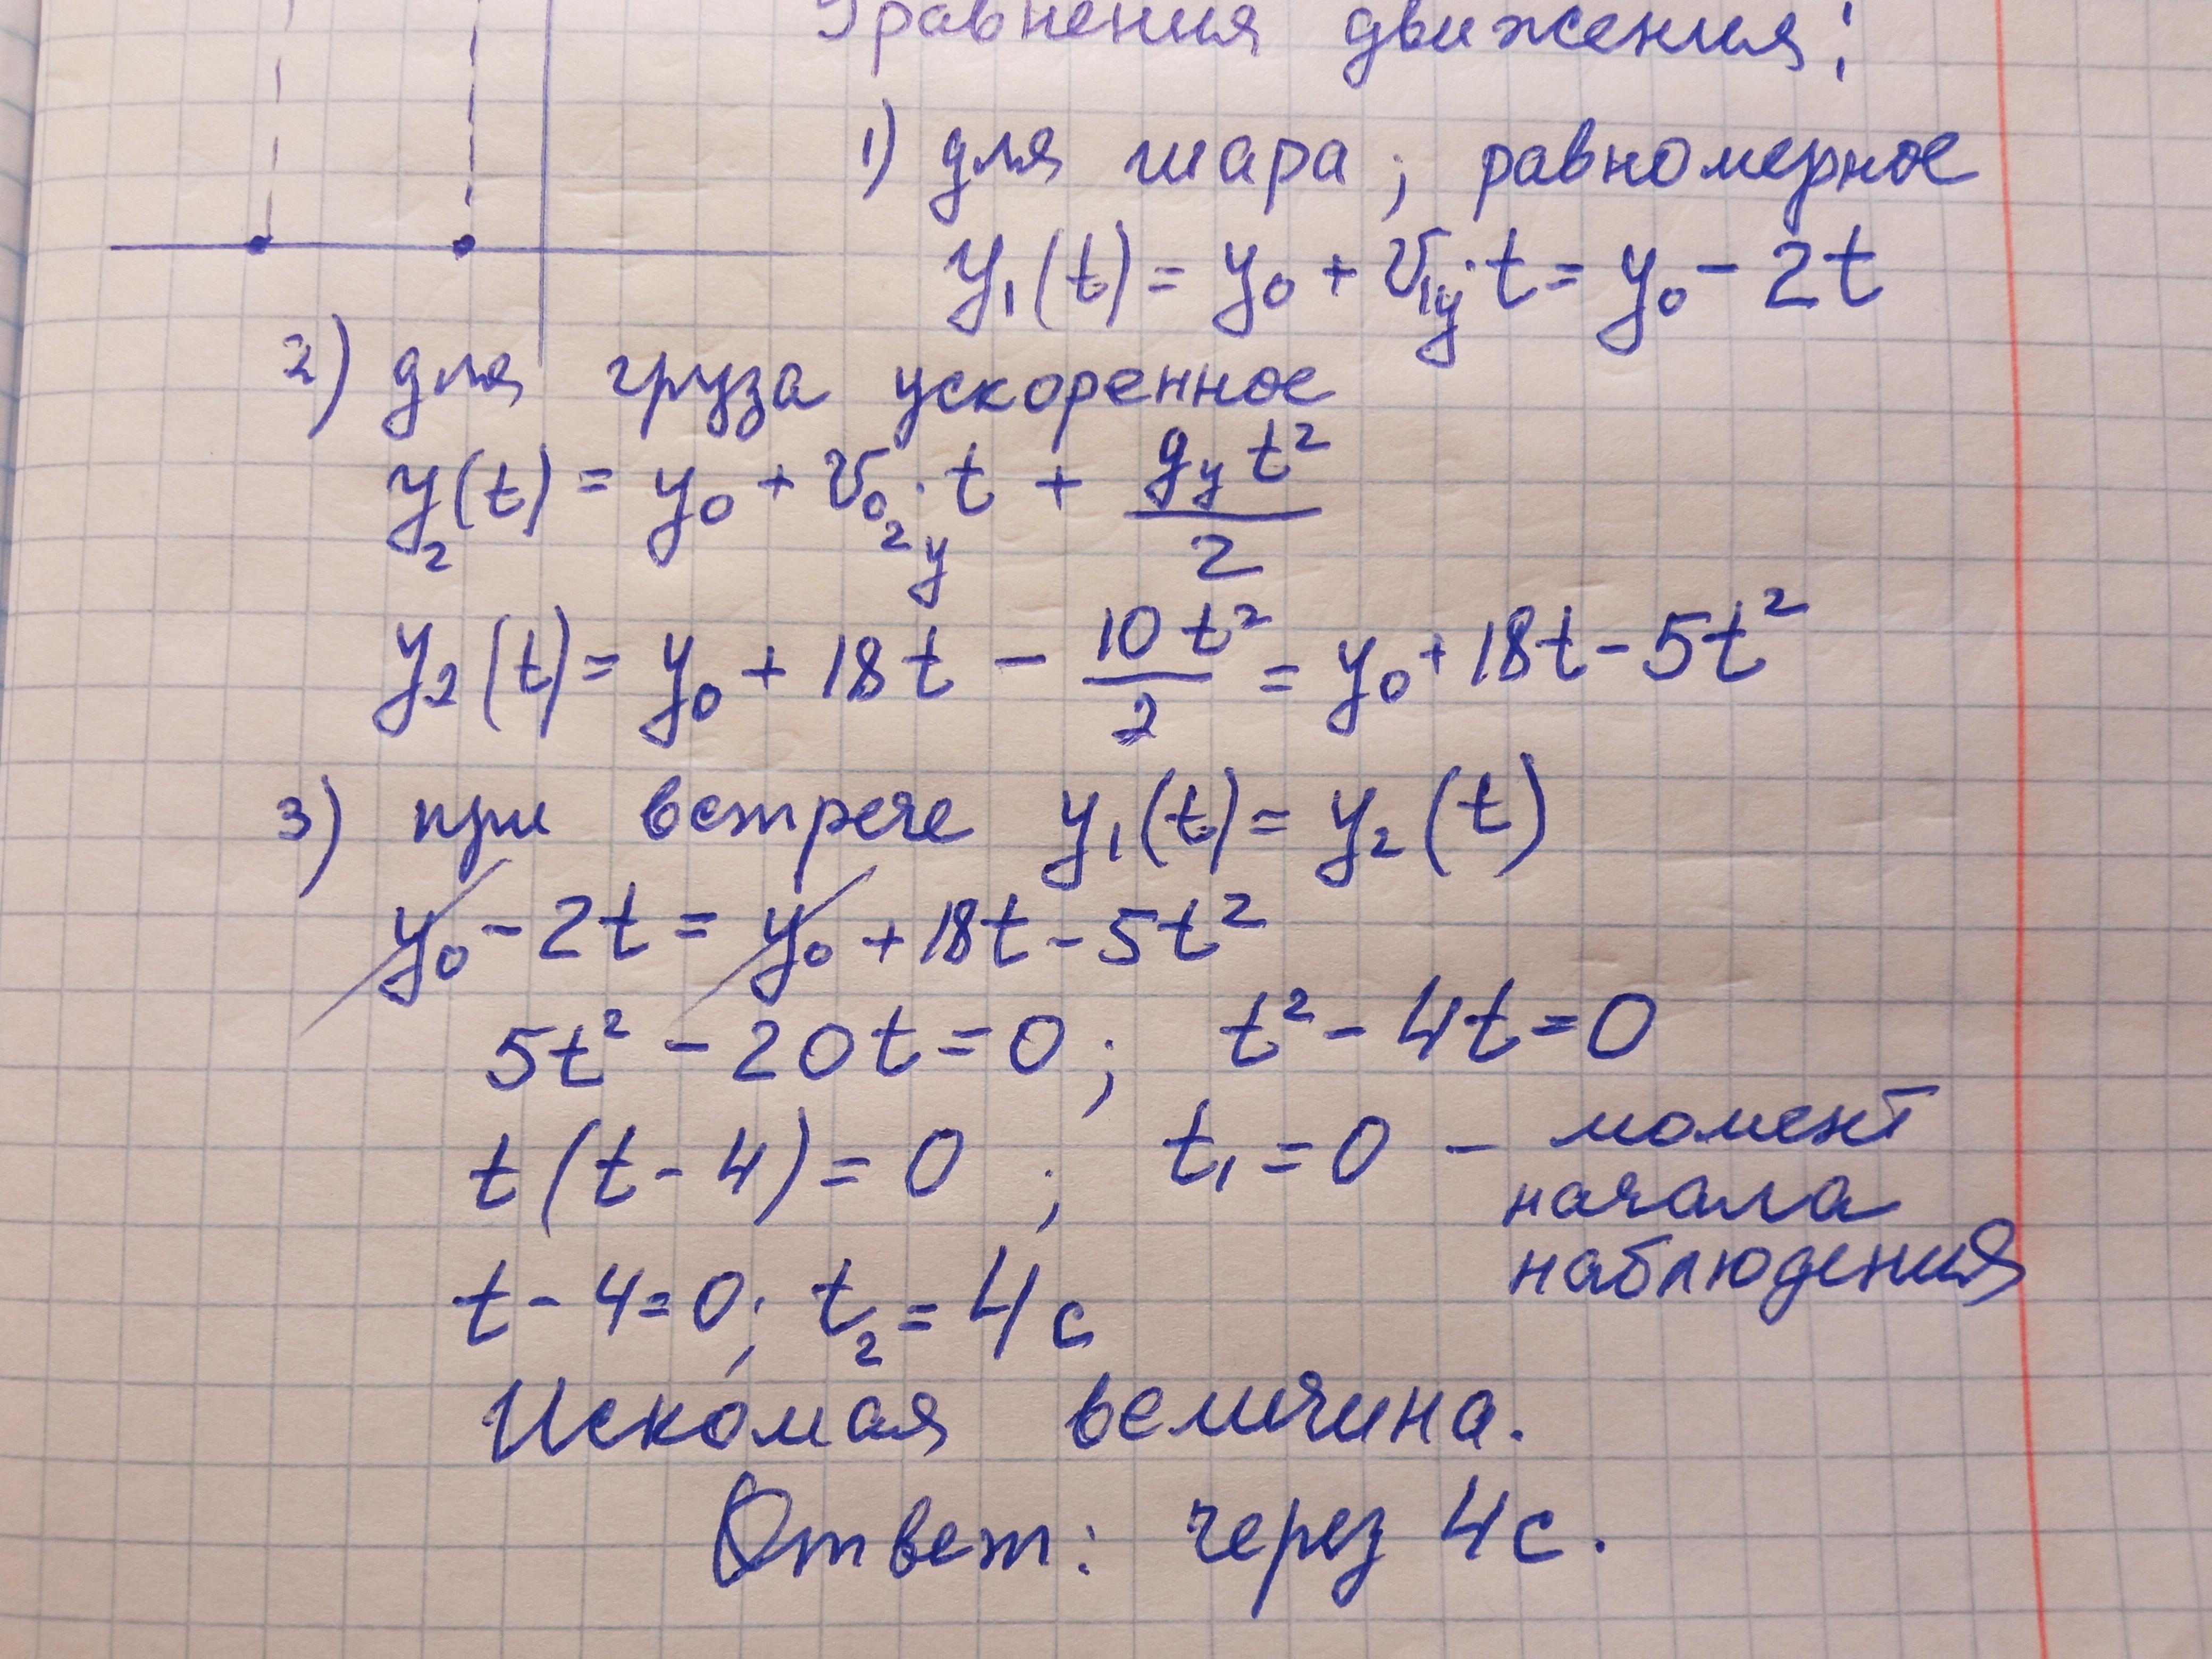 Уравнения движения:
1) для шара; равномерное
y₁(t) = y₀ + v₁y·t = y₀ - 2t
2) для груза ускоренное
y₂(t) = y₀ + v₀₂y·t + gy t²/2
y₂(t) = y₀ + 18t - 10t²/2 = y₀ + 18t - 5t²
3) при встрече y₁(t) = y₂(t)
y₀ - 2t = y₀ + 18t - 5t²
5t² - 20t = 0; t² - 4t = 0
t(t - 4) = 0; t₁ = 0 - момент
начала
наблюдения
t - 4 = 0; t₂ = 4 с
Искомая величина.
Ответ: через 4 с.